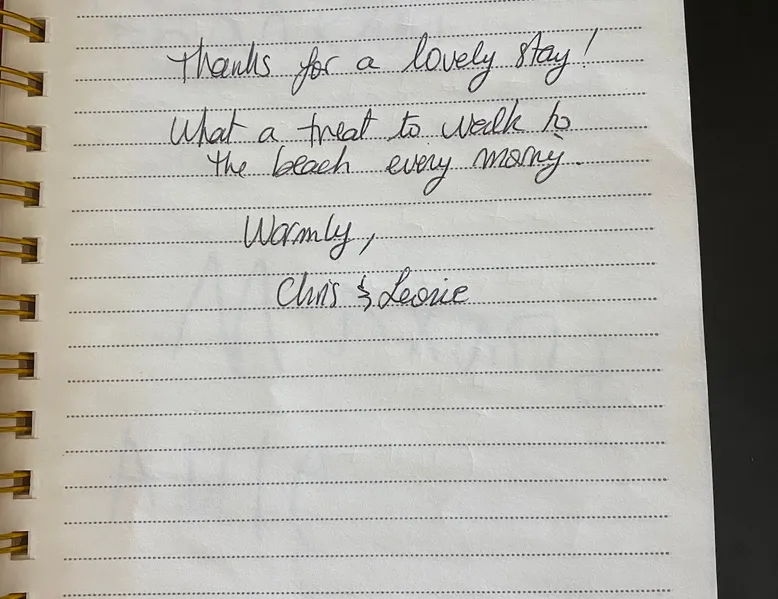 Thanks for a lovely stay!
What a treat to walk to
the beach every morny.
Warmly,
Chris & Leonie